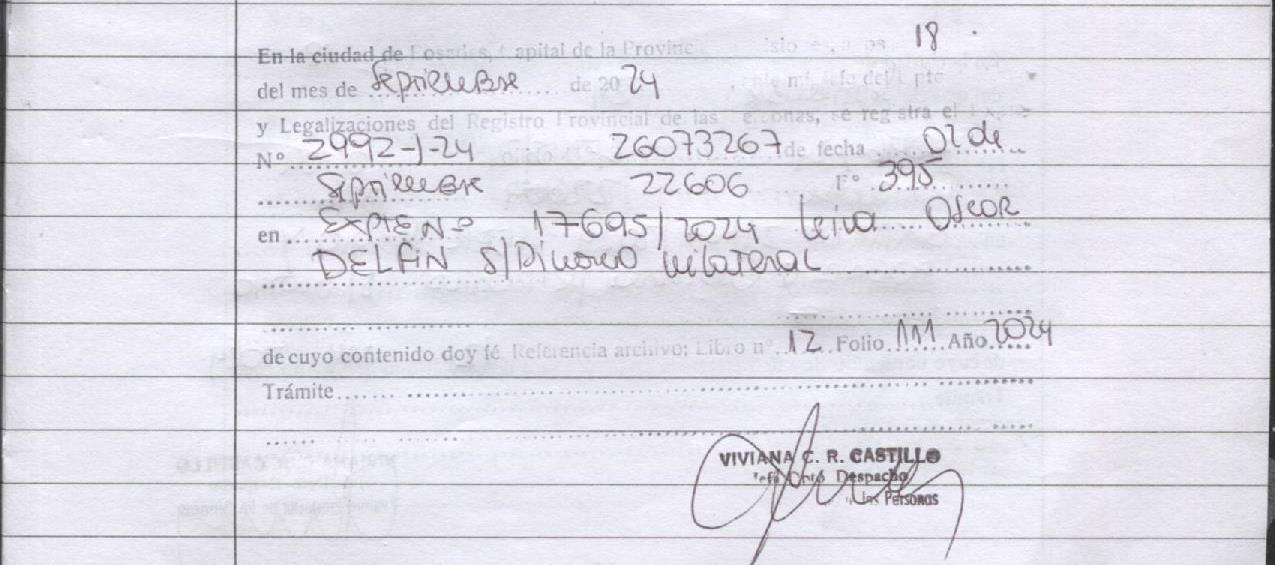 En la ciudad de Posadas, Capital de la Provinc 18
del mes de Septiembre de 2024
y Legalizaciones del Registro Provincial de las Personas, se registra el
N° 2992-J-24 26073267 de fecha 02 de
Septiembre 22606 F° 395
en EXPTE Nº 17695/2024 Leiva Oscar
DELFIN S/Divorcio Unilateral
de cuyo contenido doy fé. Referencia archivo: Libro n° 12 Folio 111 Año 2024
Trámite
VIVIANA C. R. CASTILLO
Despacho
las Personas